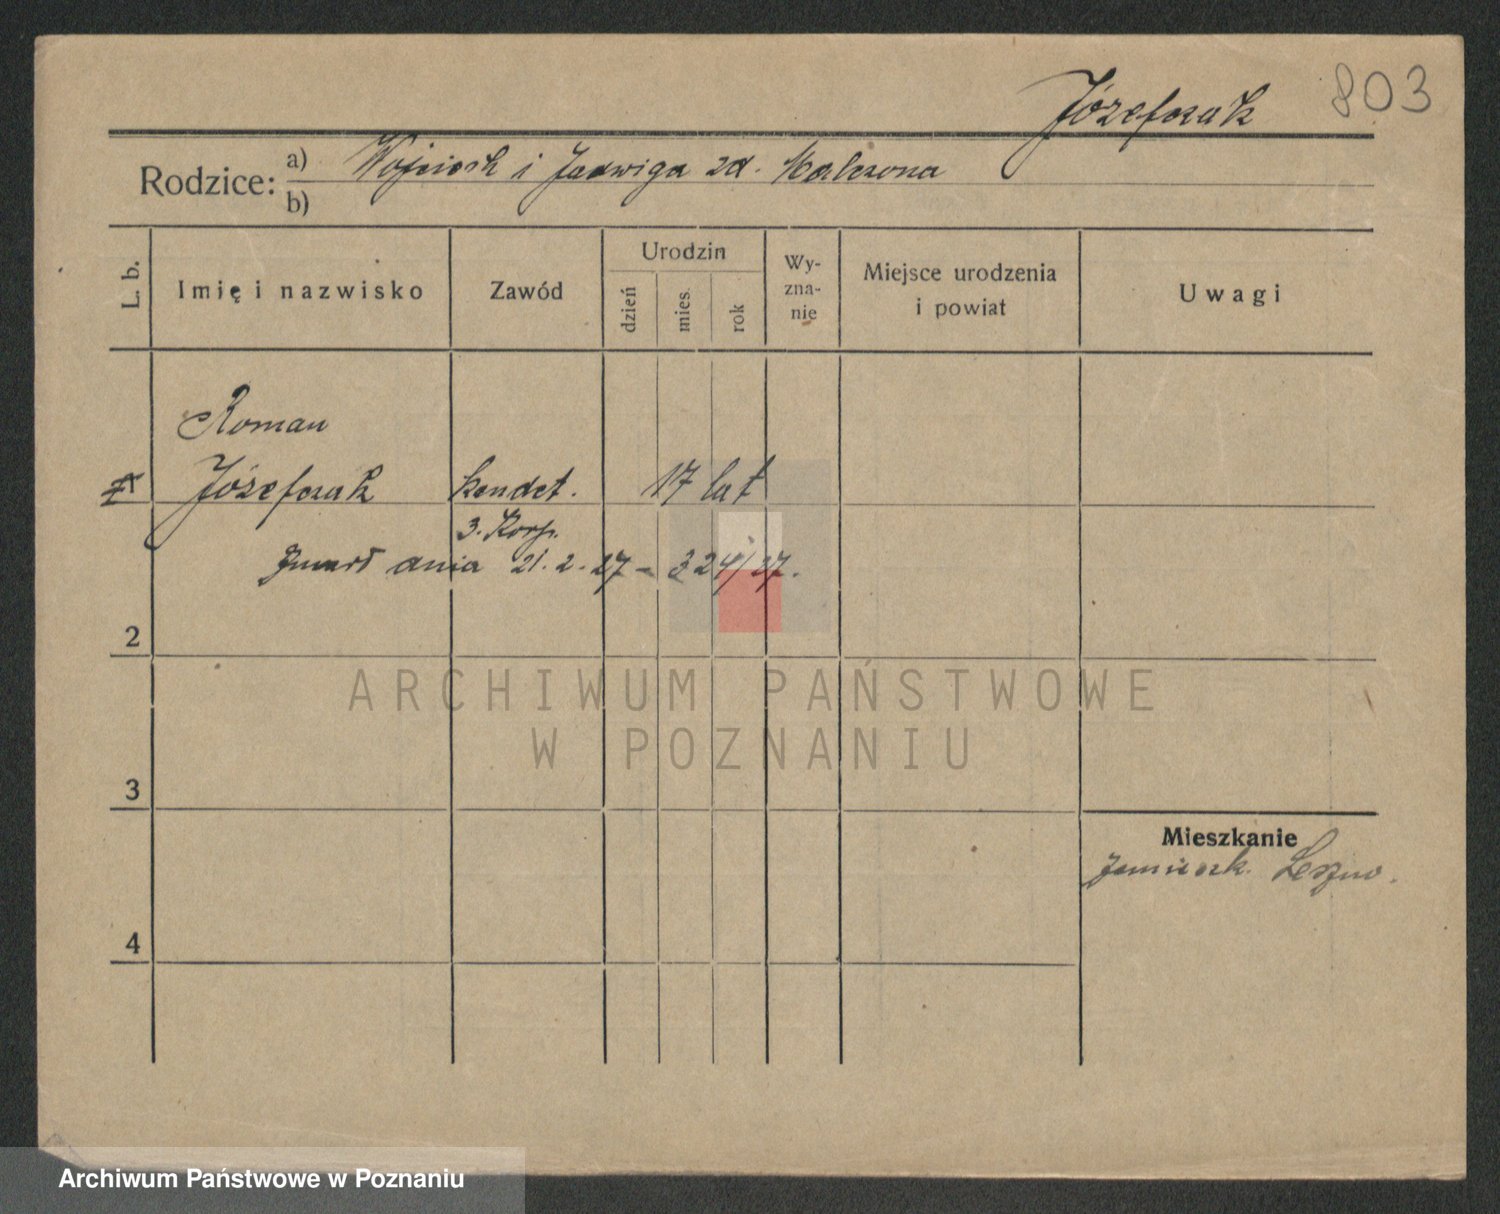 803
Józefczak
Rodzice: a) Wojciech i Jadwiga zd.
b)
L. b.
Imię i nazwisko
Zawód
Urodzin
dzień
mies.
rok
Wy-
zna-
nie
Miejsce urodzenia
i powiat
Uwagi
Roman
Józefczak kendet. 17 lat
3. Korp.
zmarł dnia 21.2.27 - 324/27.
2
3
4
Mieszkanie
zamieszk. Leszno.
ARCHIWUM PAŃSTWOWE
W POZNANIU
Archiwum Państwowe w Poznaniu